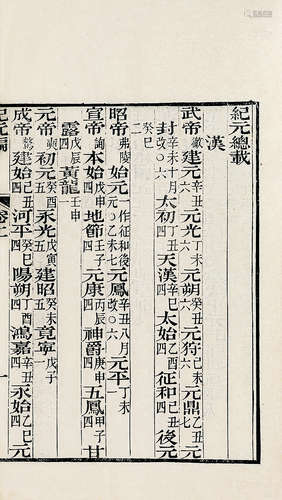 紀元總載
漢
武帝徹建元辛丑六元光丁未六元朔癸丑六元狩己未六元鼎乙丑七元
封辛未十月改〇六太初丁丑四天漢辛巳四太始乙酉四征和己丑四後元
癸巳二
昭帝弗陵始元一作征和後元鳳辛丑八月改〇六元平丁未
宣帝詢本始戊申四地節壬子四元康丙辰四神爵庚申四五鳳甲子四甘
露戊辰四黃龍壬申
元帝奭初元癸酉五永光戊寅五建昭癸未五竟寧戊子一
成帝驁建始己丑四河平癸巳四陽朔丁酉四鴻嘉辛丑四永始乙巳四元
紀元編 卷上 一